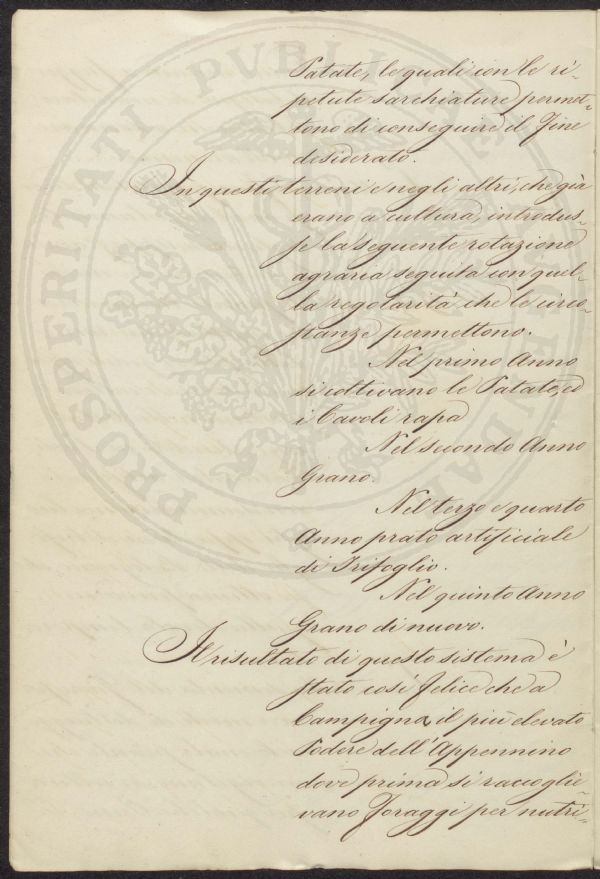 Patate, le quali con le ri-
petute sarchiature permet-
tono di conseguire il fine
desiderato.
In questi terreni e negli altri, che già
erano a cultura, introdus-
se la seguente rotazione
agraria seguita con quel-
la regolarità che le circo-
stanze permettono.
Nel primo Anno
si coltivano le Patate, ed
i Cavoli rapa
Nel secondo Anno
Grano.
Nel terzo e quarto
Anno prato artificiale
di Trifoglio.
Nel quinto Anno
Grano di nuovo.
Il risultato di questo sistema è
stato così felice che a
Campigna, il più elevato
Podere dell'Appennino
dove prima si raccoglie-
vano Foraggi per nutri-
PROSPERITATI PVBLICAE